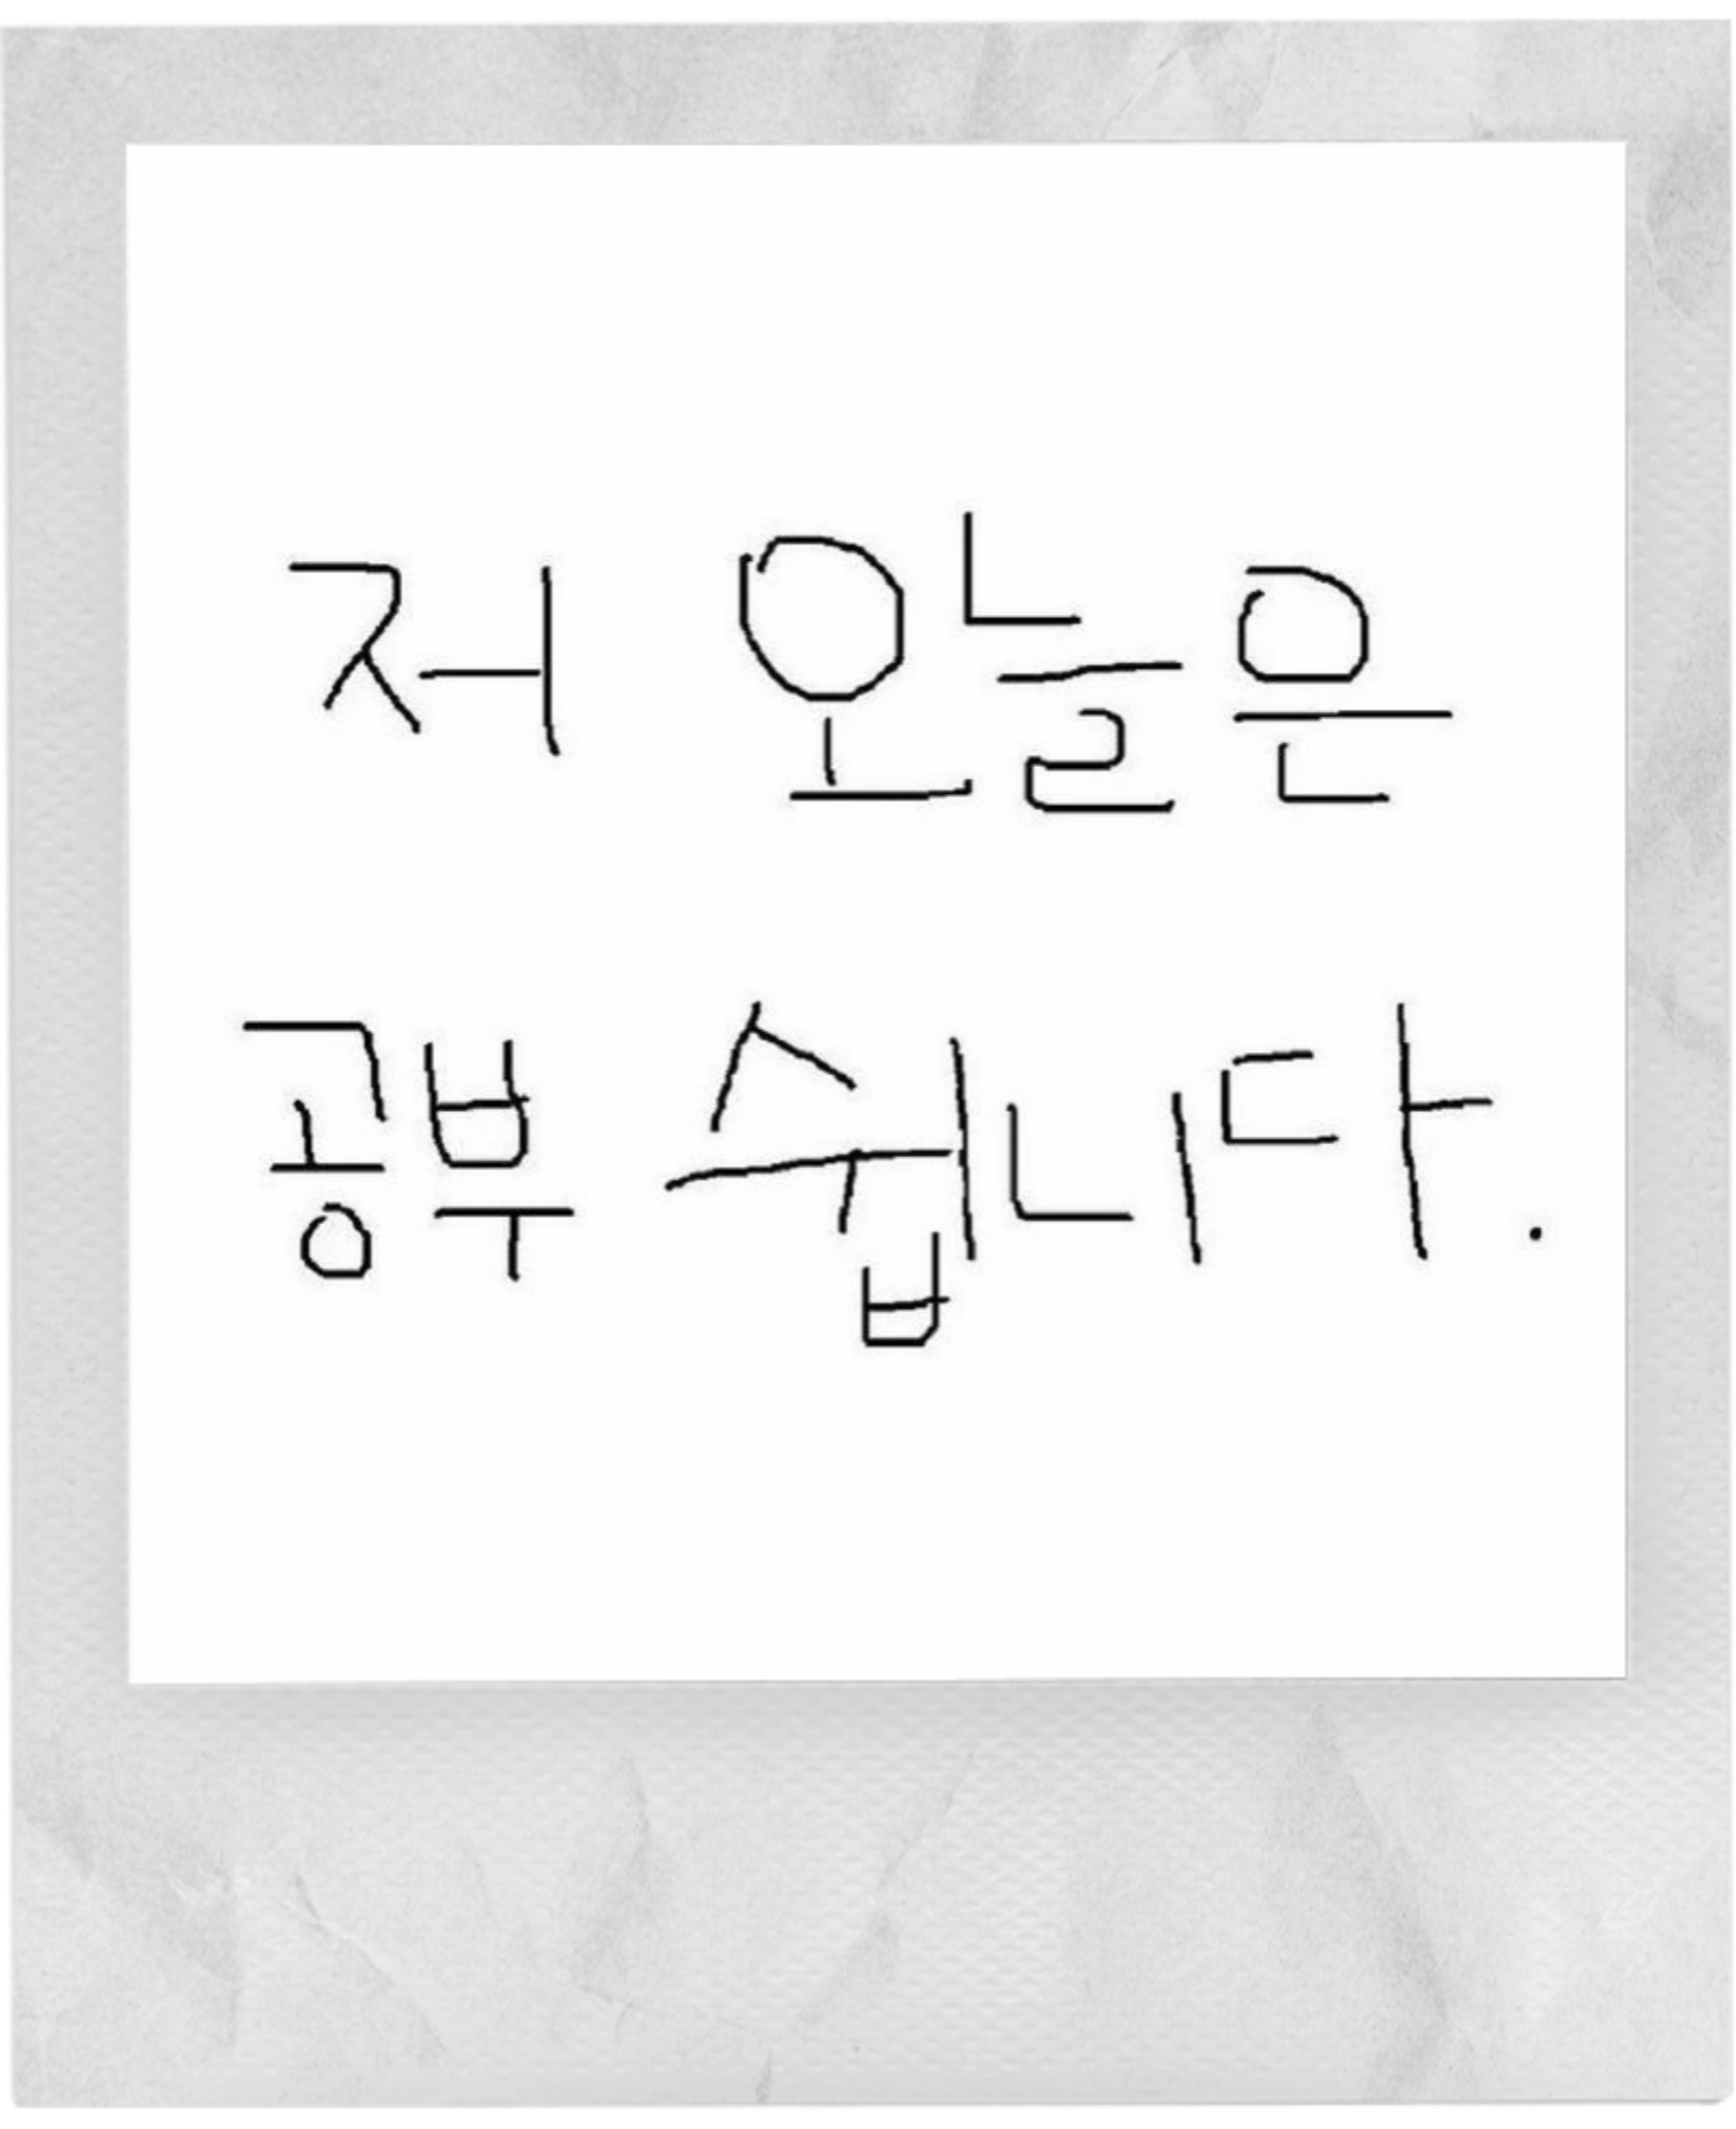 저 오늘은
공부 쉽니다.